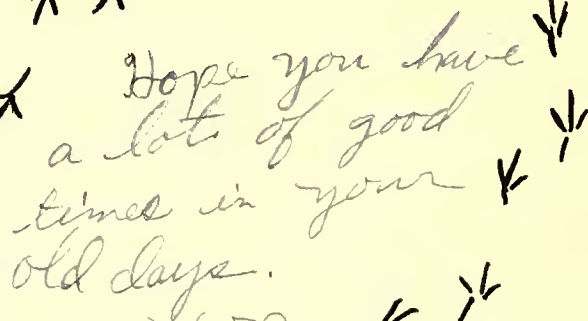 Hope you have
a lots of good
times in your
old days.